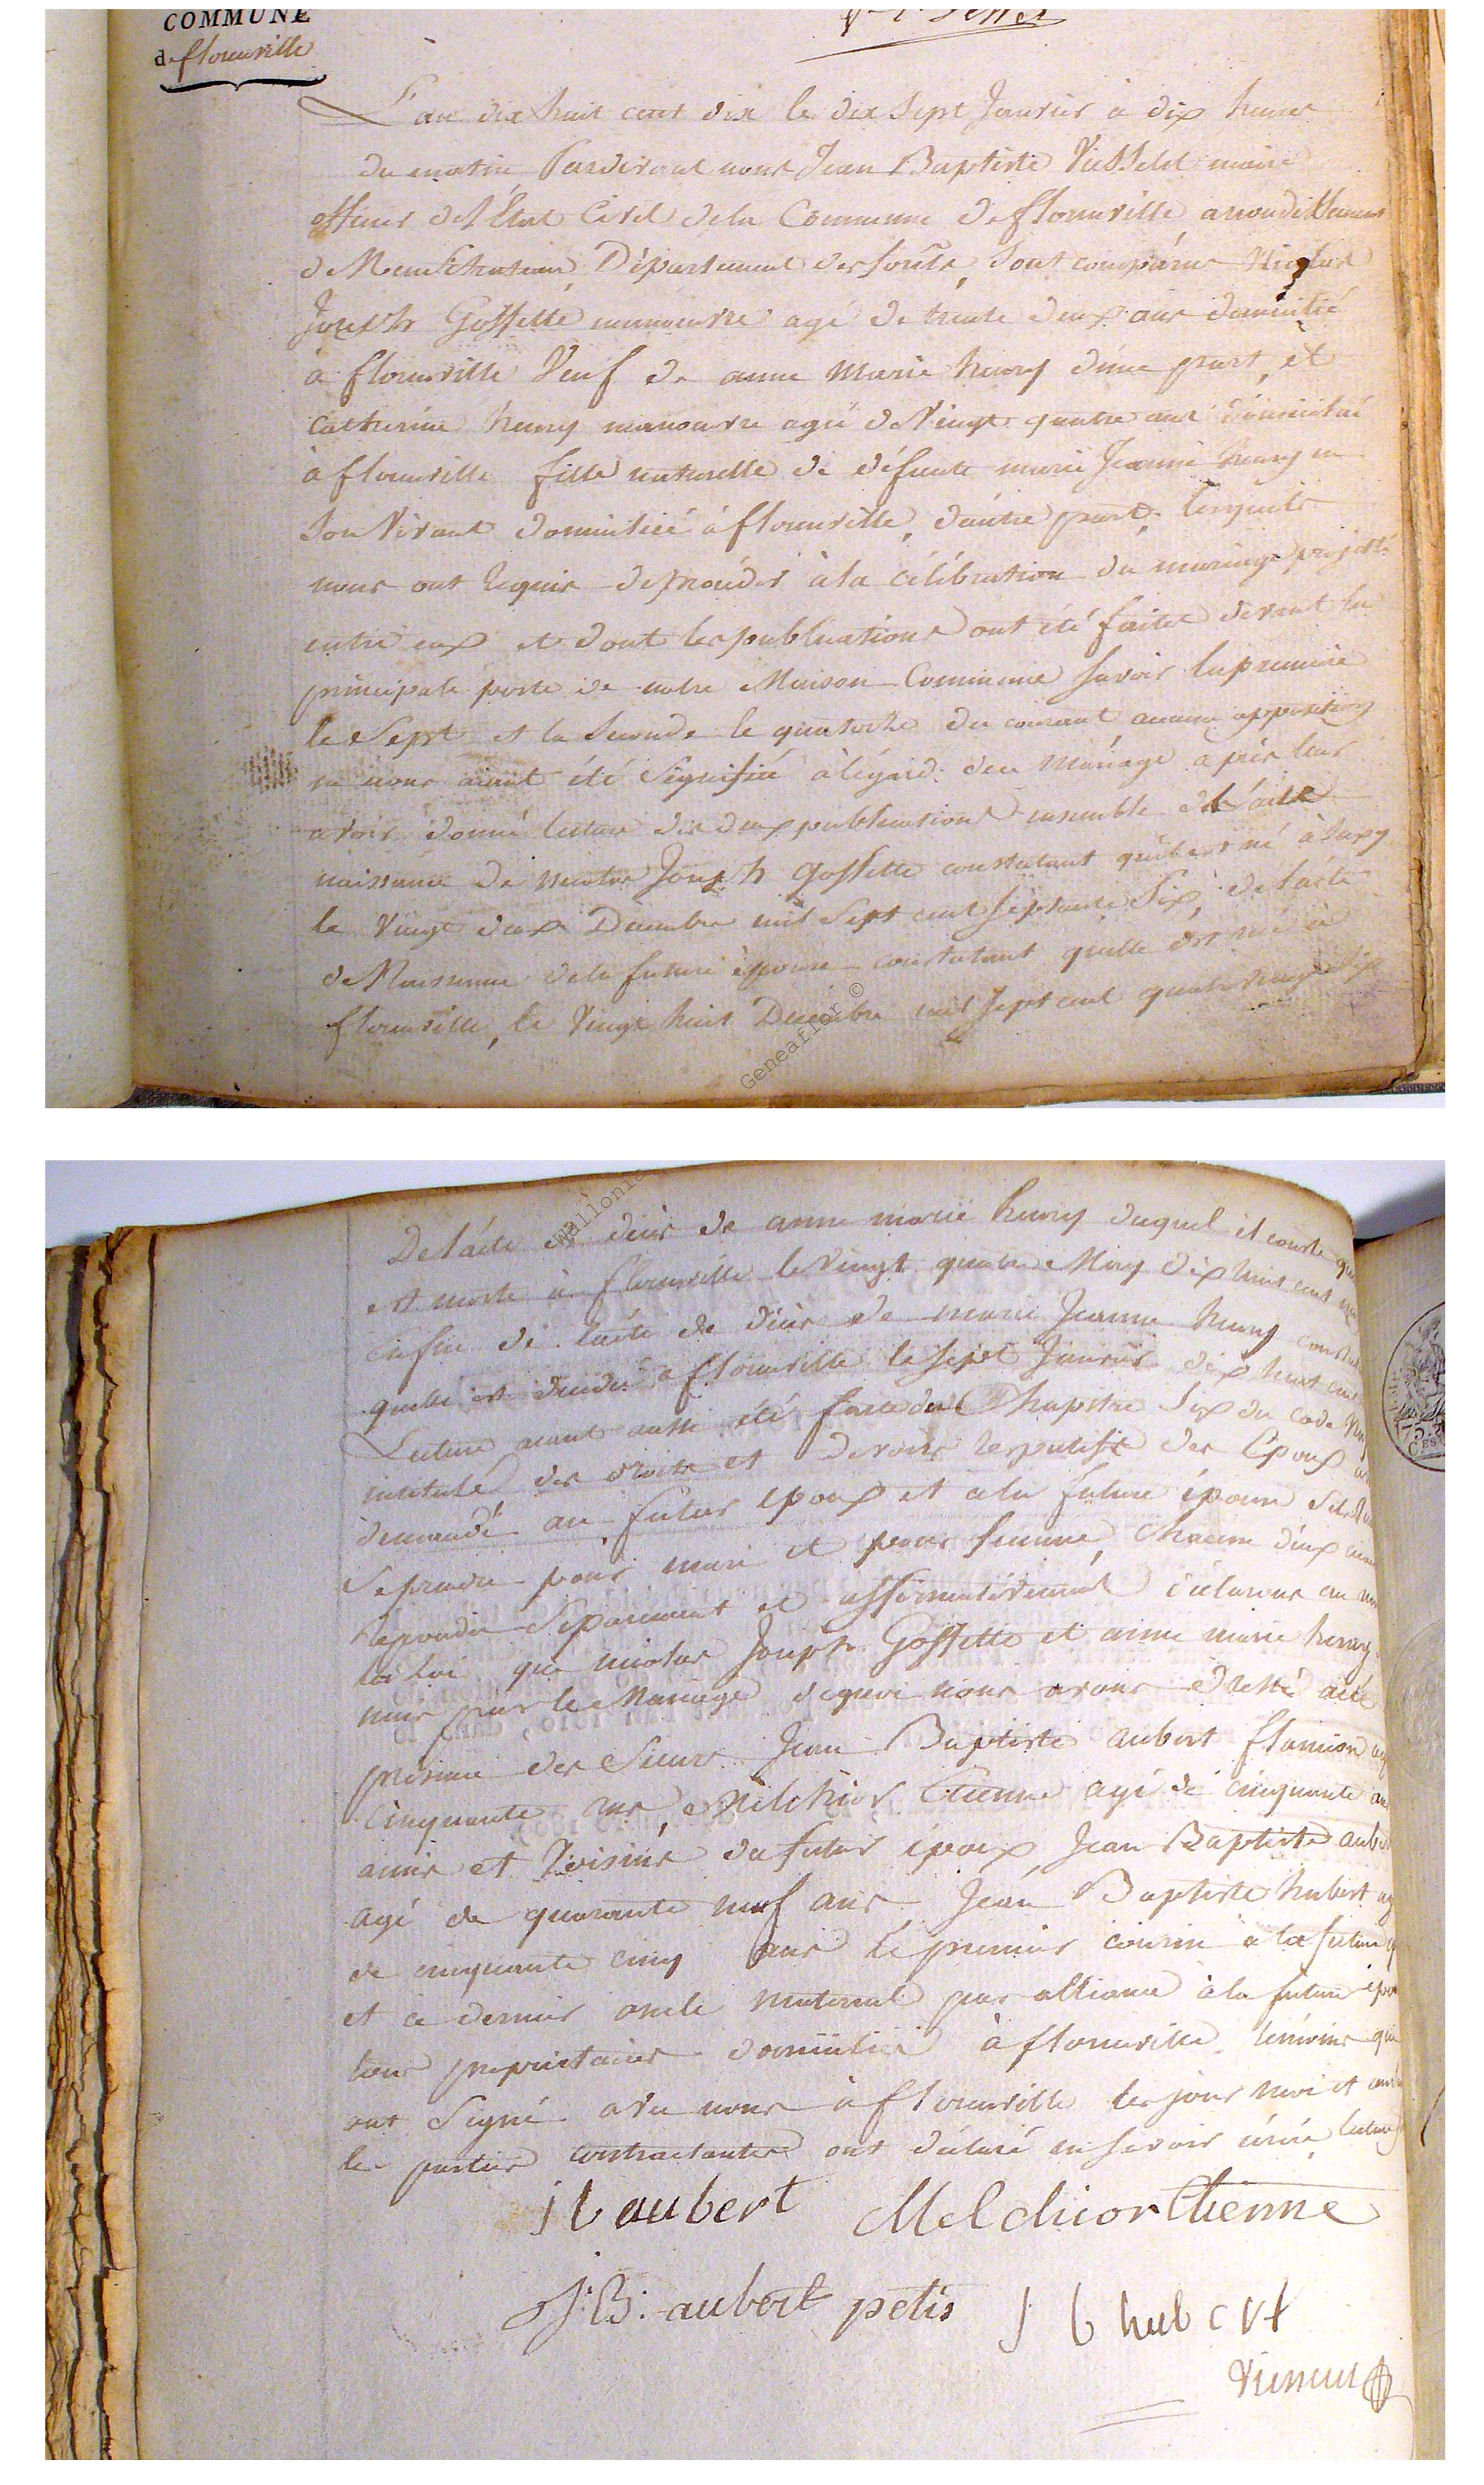 COMMUNE
de florenville
L'an dix huit cent dix le dix sept Janvier à dix heures
du matin Pardevant nous Jean Baptiste maire
officier de l'État Civil de la Commune de florenville arrondissement
de Neufchateau, Département des forêts, sont comparus Nicolas
Joseph Gossette manoeuvre agé de trente deux ans domicilié
à florenville Veuf de anne Marie henry d'une part, et
Catherine henry manoeuvre agée de Vingt quatre ans domiciliée
à florenville fille naturelle de défunte marie Jeanne henry en
son Vivant domiciliée à florenville, d'autre part, lesquels
nous ont requis de procéder à la célébration du mariage projetté
entre eux et dont les publications ont été faites devant la
principale porte de notre Maison Commune savoir la premiere
le Sept et la Seconde le quatorze du courant aucune opposition
ne nous aiant été Signifiée à légard du Mariage après leur
avoir donné lecture des deux publications ensemble de l'acte
naissance de nicolas Joseph Gossette constatant qu'il est né à
le Vingt deux Décembre mil Sept cent Septante Six, de l'acte
de Naissance de la future épouse constatant quelle est née à
florenville, le Vingt huit Décembre mil Sept cent quatre vingt
Geneaflor ©
Wallonia
De l'acte de décès de anne marie henry duquel il conste
est morte à florenville le Vingt quatre May dix huit cent
enfin de l'acte de décès de marie Jeanne henry
quelle est décédée à florenville le Sept Janvier dix huit cent
Lecture aiant aussi été faite du Chapitre Six du code
intitulé des droits et devoirs respectifs des Epoux
demandé au futur époux et à la future épouse
se prendre pour mari et pour femme, chacun d'eux
répondu Séparement et affirmativement déclarons au
la loi que nicolas Joseph Gossette et anne marie henry
unis par le Mariage dequoi nous avons dressé acte
présence des Sieurs Jean Baptiste aubert flamion
cinquante ans, Melchior Etienne agé de cinquante
amis et Voisins du futur époux Jean Baptiste
agé de quarante neuf ans Jean Baptiste hubert
de cinquante cinq ans le premier cousin à la future
et ce dernier oncle maternel par alliance à la future
tous propriétaires domiciliés à florenville témoins qui
ont Signé avec nous à florenville les jour mois et
les parties contractantes ont déclaré ne savoir écrire
j b aubert Melchior Etienne
J: B: aubert petis j b hubert